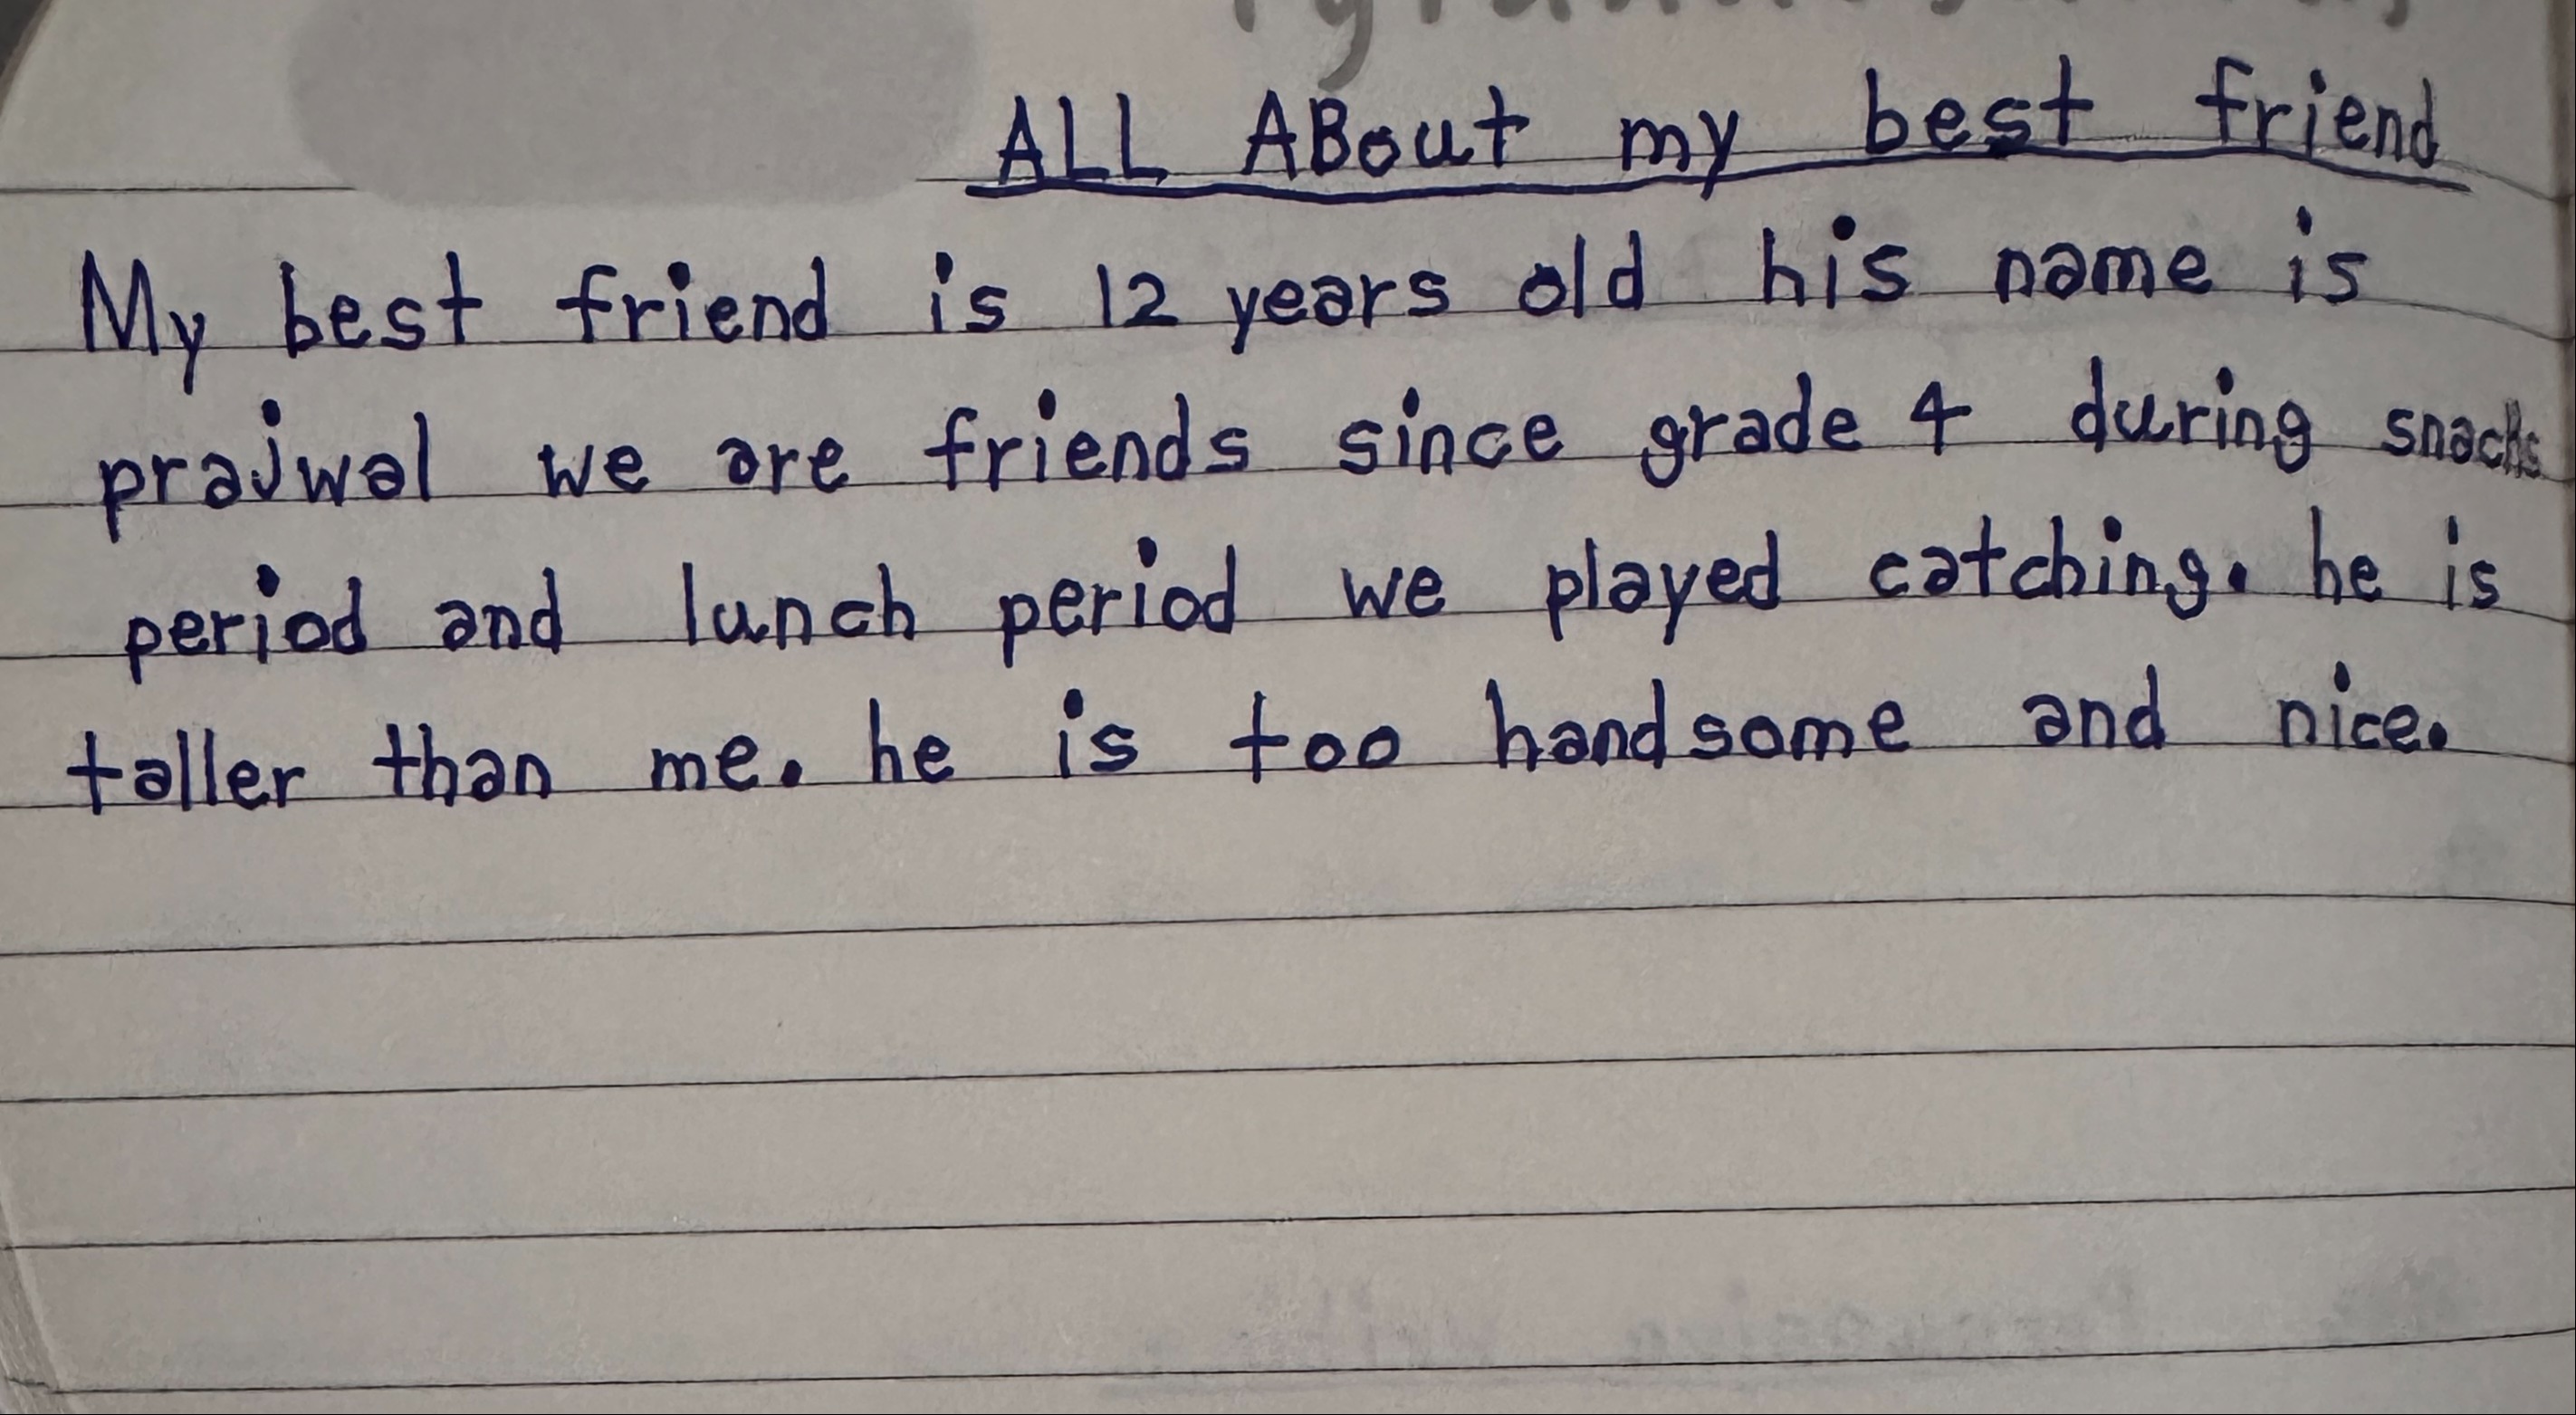 ALL ABout my best friend
My best friend is 12 years old his name is
prajwal we are friends since grade 4 during snacks
period and lunch period we played catching. he is
taller than me. he is too handsome and nice.